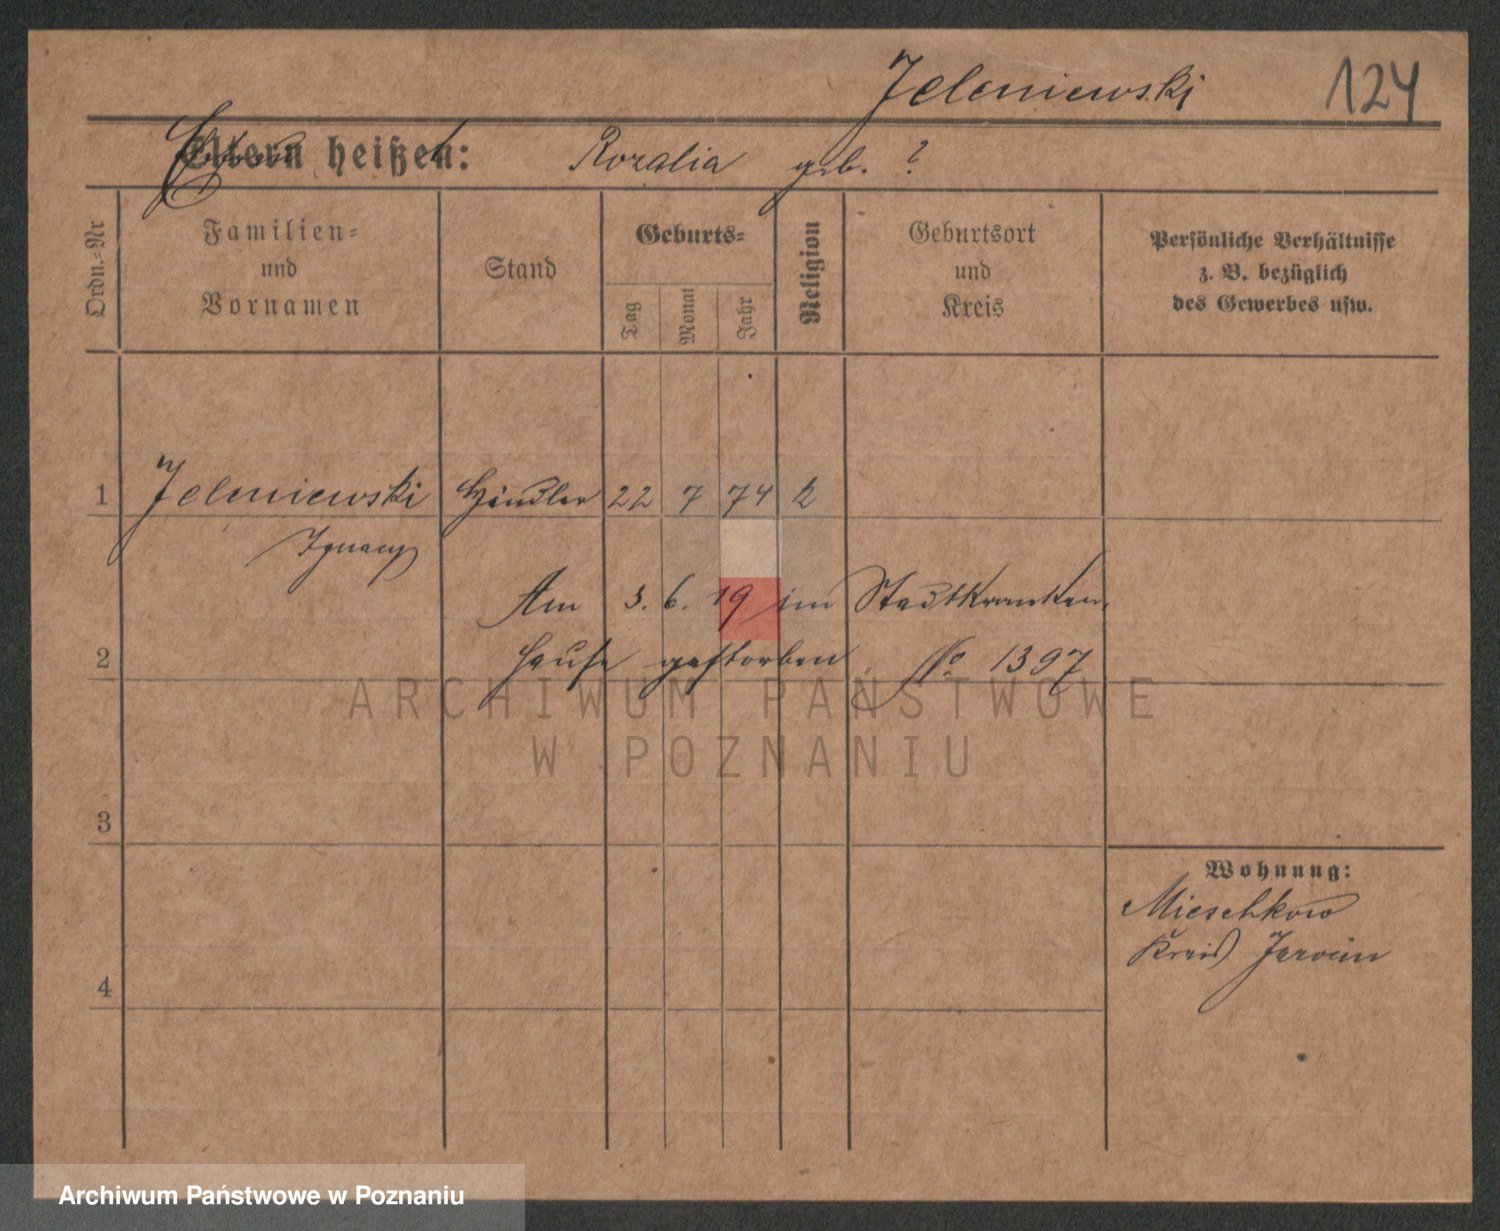 Jeleniewski 124
Eltern heißen: Rozalia geb. ?
Ordn.-Nr
Familien- und Vornamen
Stand
Geburts-
Tag
Monat
Jahr
Religion
Geburtsort und Kreis
Persönliche Verhältnisse
z. B. bezüglich
des Gewerbes usw.
1 Jeleniewski Händler 22 7 74 k
Ignacy
Am 3. 6. 19 im Stadtkranken-
2 hause gestorben. No 1397
3
Wohnung:
Mieschkow
Kreis Jarocin
4
ARCHIWUM PAŃSTWOWE
W POZNANIU
Archiwum Państwowe w Poznaniu